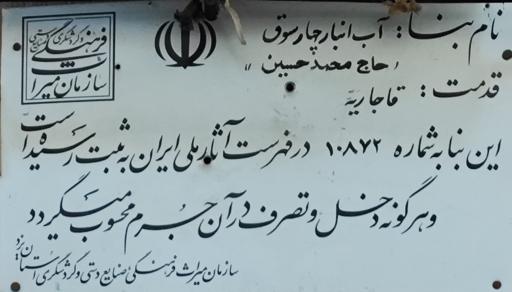 نام بنا : آب انبار چهار سوق
" حاج محمد حسین "
قدمت : قاجاریه
این بنا به شماره ۱۰۸۷۲ در فهرست آثار ملی ایران به ثبت رسیده است
و هر گونه دخل و تصرف در آن جرم محسوب میگردد
سازمان میراث فرهنگی صنایع دستی و گردشگری استان یزد
سازمان میراث فرهنگی صنایع دستی و گردشگری